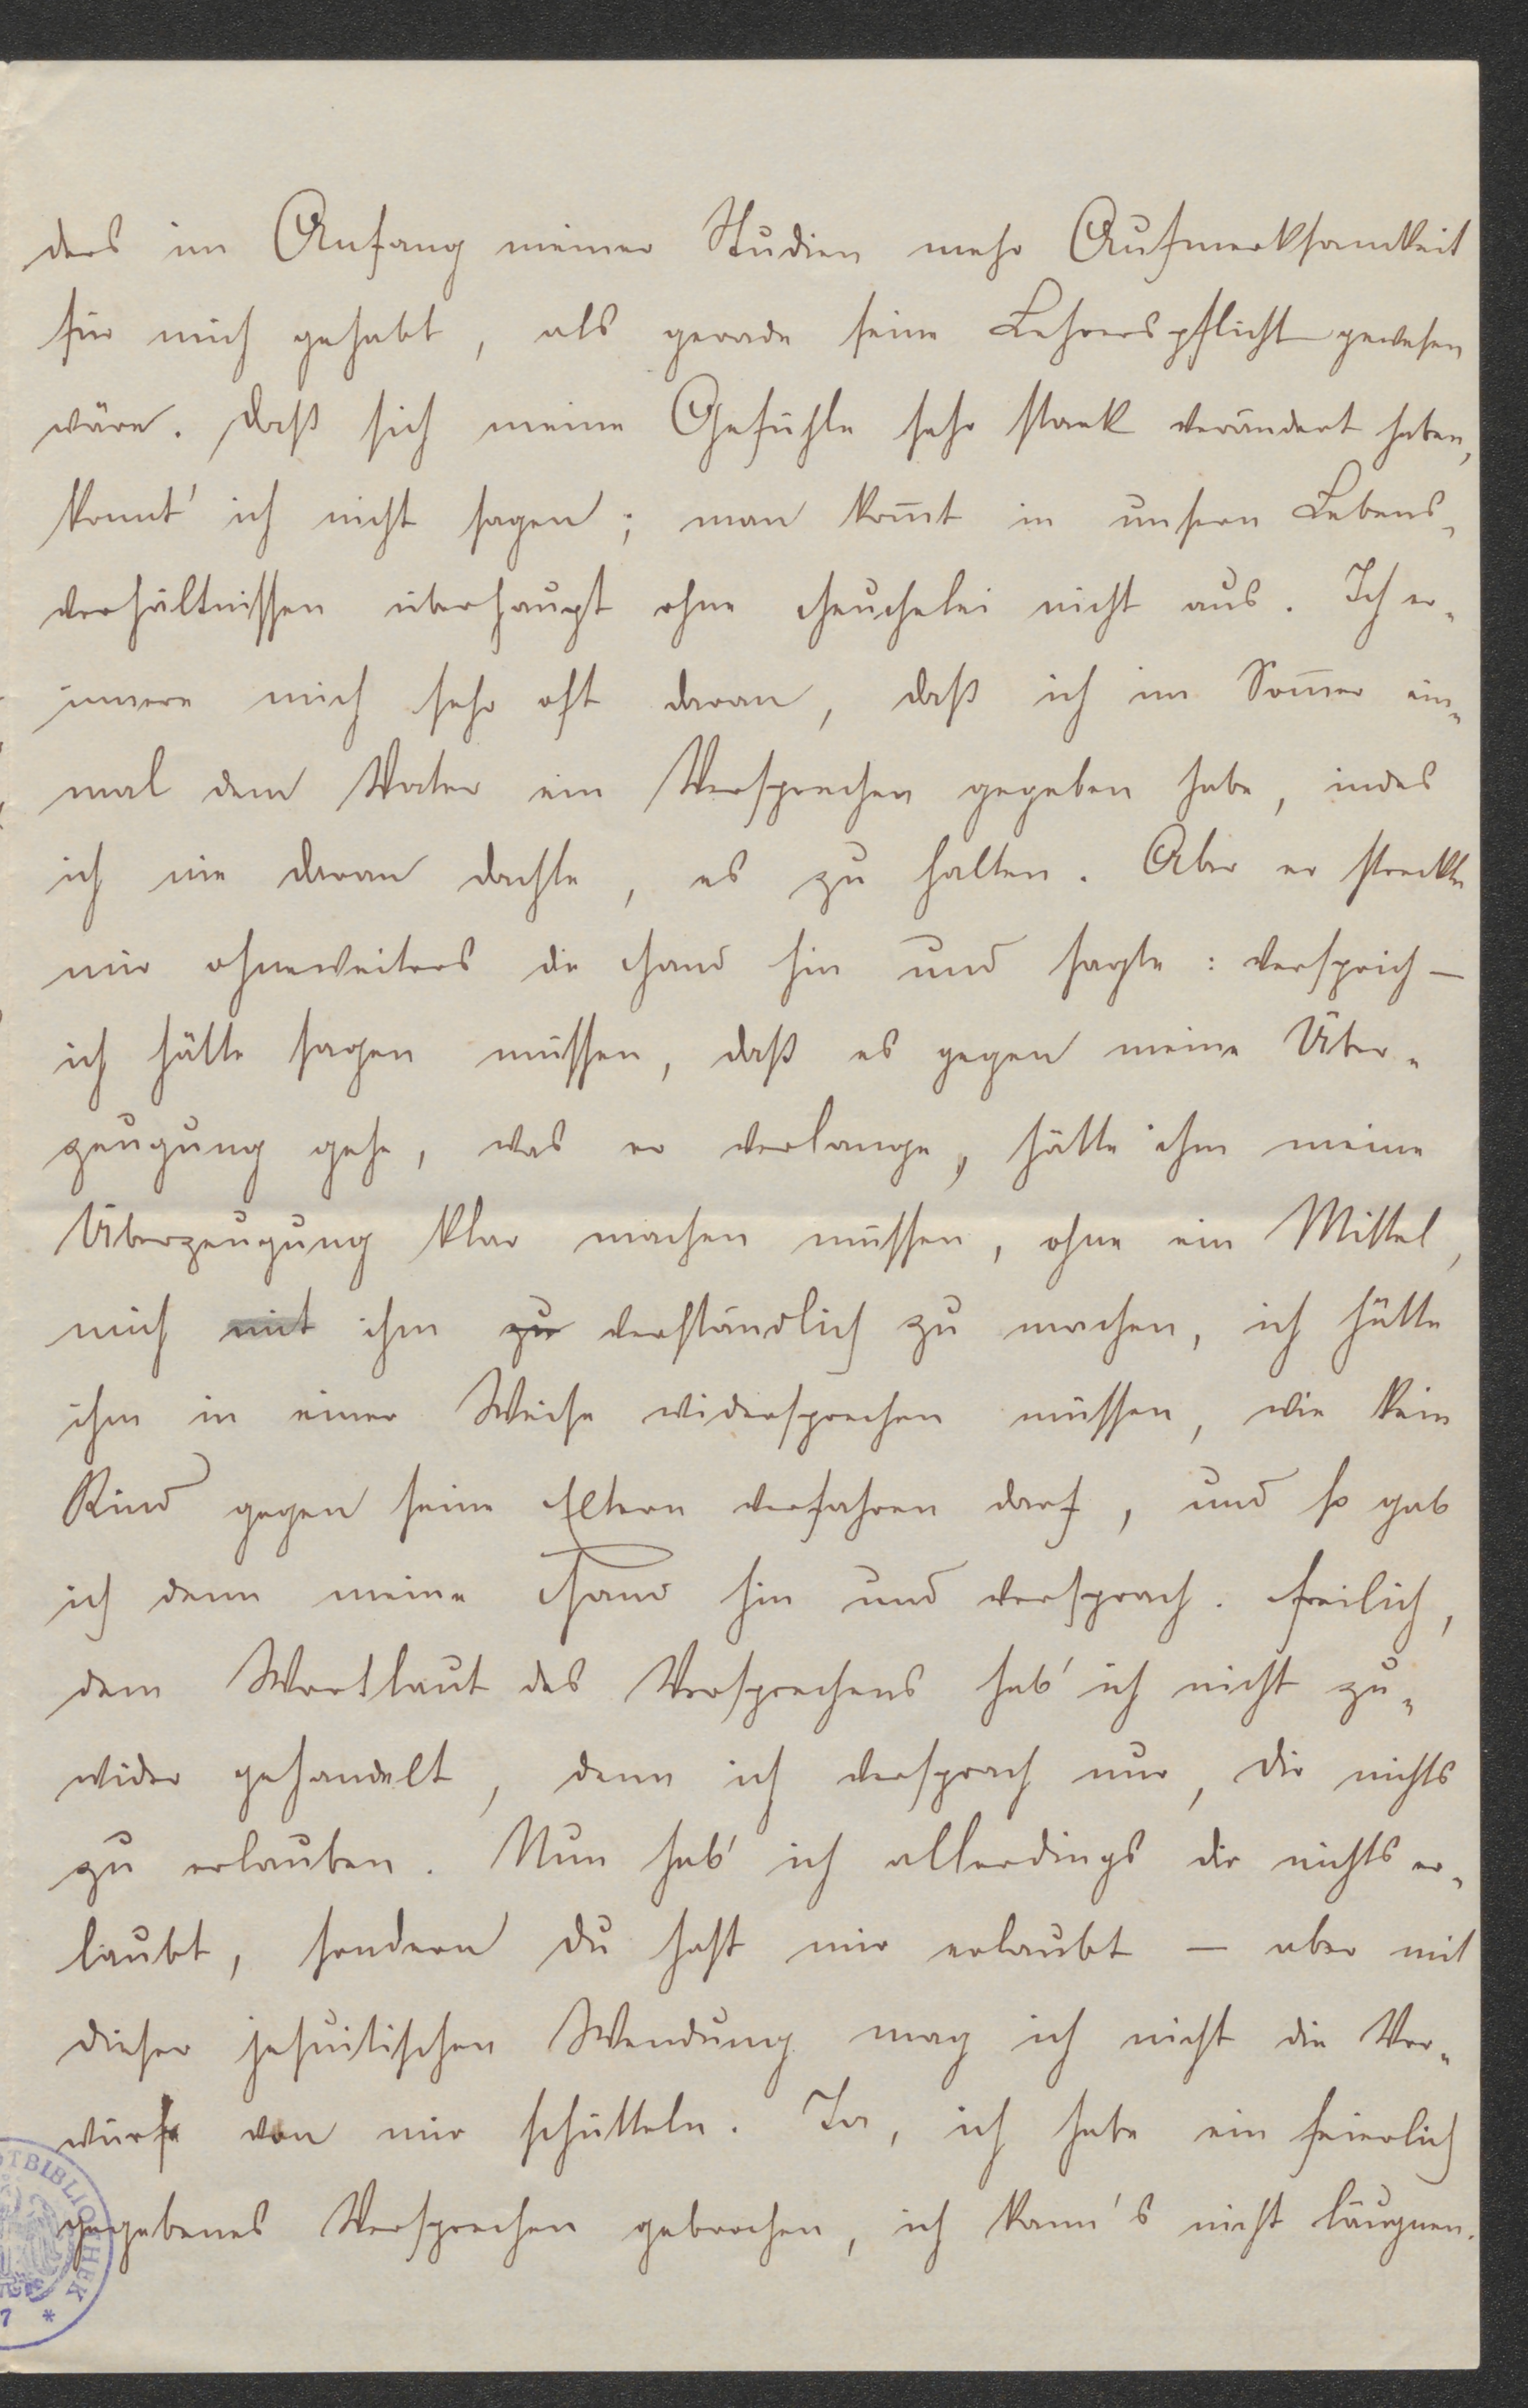 ders im Anfang meiner Studien mehr Aufmerksamkeit
für mich gehabt, als gerade seine Lehrerspflicht gewesen
wäre. Daß sich meine Gefühle sehr stark verändert haben,
konnt' ich nicht sagen; man kom̄t in unsern Lebens-
verhältnissen überhaupt ohne Heuchelei nicht aus. Ich er-
innere mich sehr oft daran, daß ich im Som̄er ein-
mal dem Vater ein Versprechen gegeben habe, indes
ich nie daran dachte, es zu halten. Aber er streckte
mir ohneweiters die Hand hin und sagte: versprich —
ich hätte sagen müssen, daß es gegen meine Über-
zeugung gehe, was er verlange, hätte ihm meine
Überzeugung klar machen müssen, ohne ein Mittel,
mich mit ihm zu verständlich zu machen, ich hätte
ihm in einer Weise widersprechen müssen, wie kein
Kind gegen seine Eltern verfahren darf, und so gab
ich denn meine Hand hin und versprach. Freilich,
dem Wortlaut des Versprechens hab' ich nicht zu-
wider gehandelt, denn ich versprach nur, dir nichts
zu erlauben. Nun hab' ich allerdings dir nichts er-
laubt, sondern du hast mir erlaubt — aber mit
dieser jesuitischen Wendung mag ich nicht die Vor-
würfe von mir schütteln. Ja, ich habe ein feierlich
gegebenes Versprechen gebrochen, ich kann's nicht läugnen.